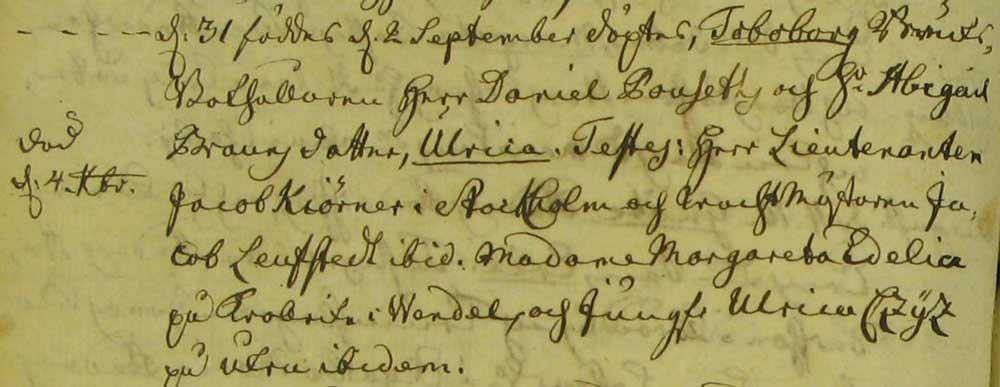 - - - - d. 31 föddes d. 2 September döptes, Toboborg Bruks,
Bokhållaren Herr Daniel Pousetts och Hr Abigail
Brauns dotter, Ulrica. Testes: Herr Lieutenanten
död
d. 4 Xbr.
Jacob Kiörner i Stockholm och Tracht Mästaren Ja,
cob Leufstedt ibid. Madame Margareta Edelia
på i Wendel, och Jungfr Ulrica
på Utru ibidem.